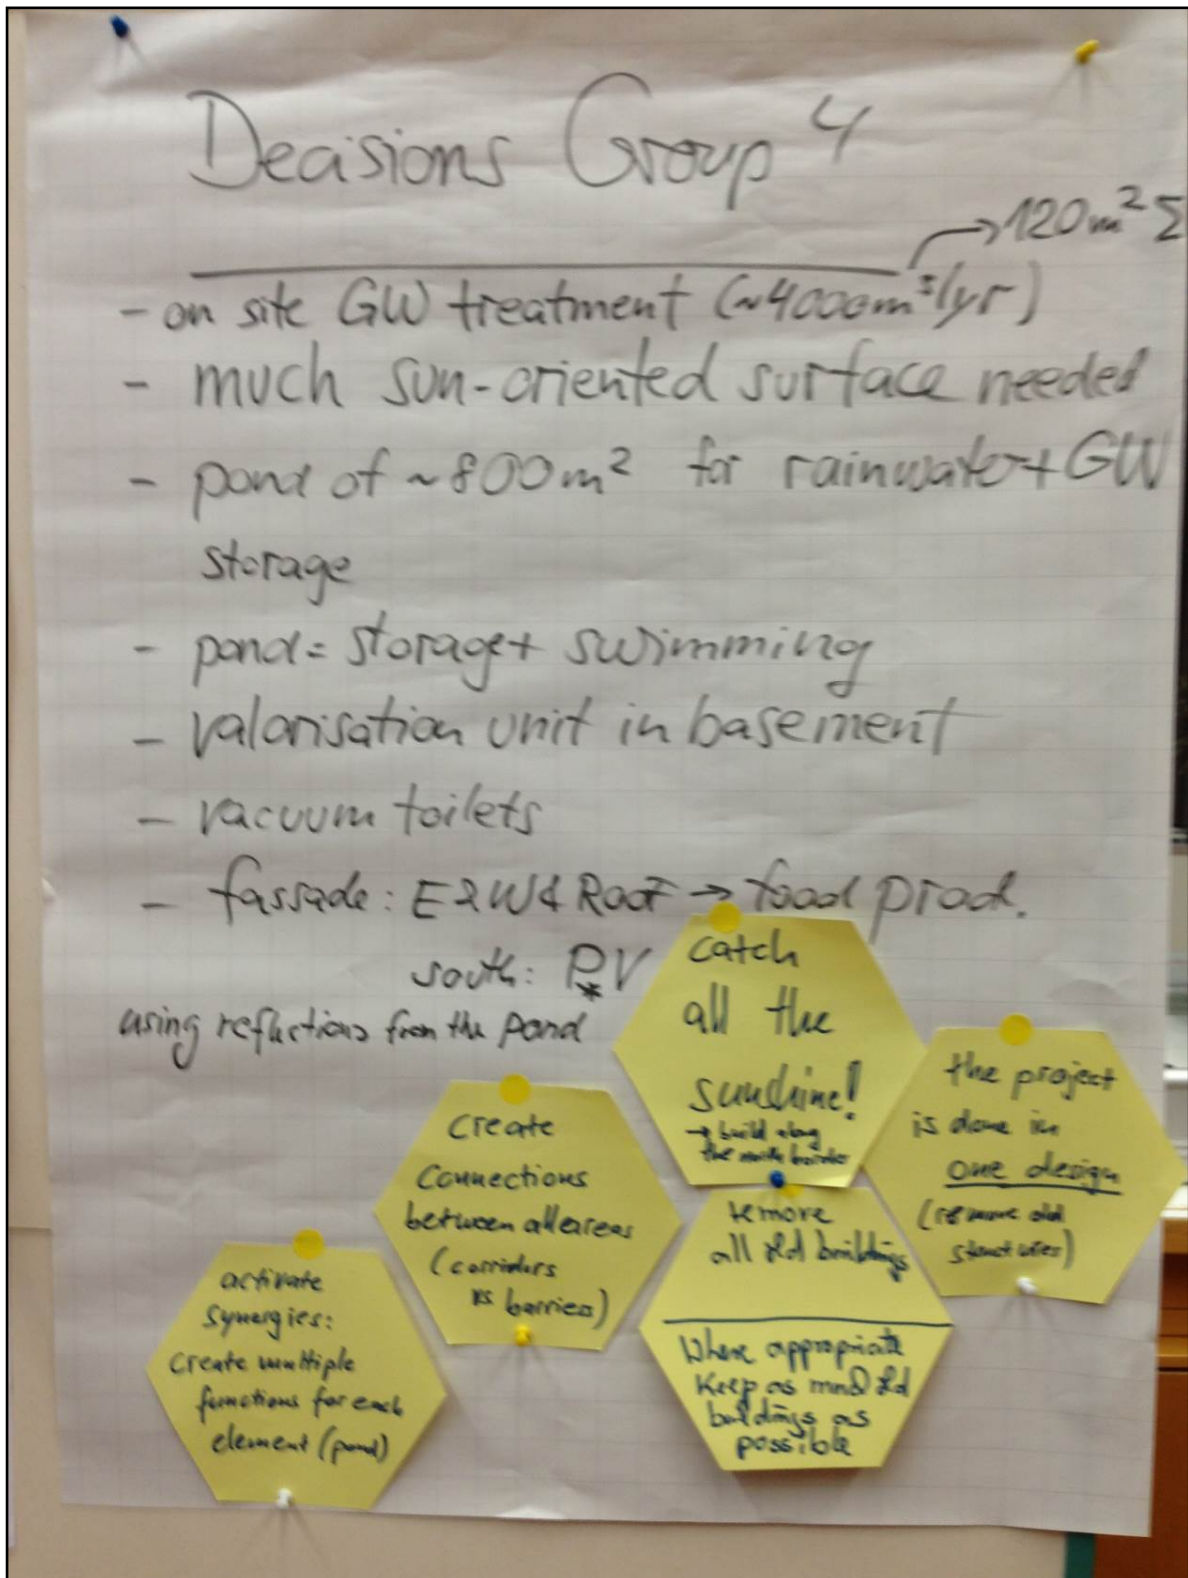 Decisions Group 4
→ 120 m² Σ
- on site GW treatment (~4000m³/yr)
- much sun-oriented surface needed
- pond of ~800m² for rainwater + GW
storage
- pond = storage + swimming
- valorisation unit in basement
- vacuum toilets
- fassade: E & W & Roof → food prod.
south: PV
*
using reflections from the pond
catch
all the
sunshine!
→ build along
the north border
the project
is done in
one design
(remove old
structures)
create
connections
between all areas
(corridors
vs. barriers)
remove
all old buildings
Where appropriate
Keep as much old
buildings as
possible
activate
synergies:
create multiple
functions for each
element (pond)